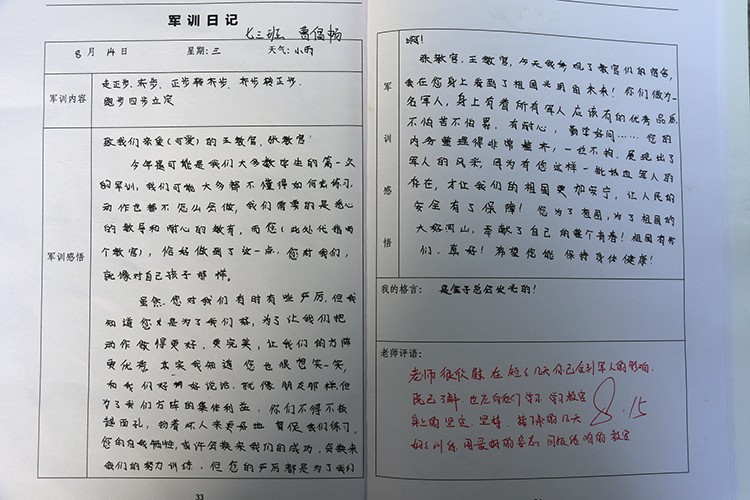 军训日记
七三班 曹倍畅
8月14日 星期:三 天气:小雨
军训内容
走正步、齐步、正步转齐步、齐步转正步、
跑步四步立定
军训感悟
致我们亲爱(可爱)的王教官、张教官:
今年是可能是我们大多数学生的第一次
的军训,我们可能大多都不懂得如何去练习,
动作也都不怎么会做,我们需要的是悉心
的教导和耐心的教育,而您(此处代指两
个教官),恰好做到了这一点,您对我们,
就像对自己孩子那样。
虽然,您对我们有时有些严厉,但我
知道您也是为了我们好,为了让我们把
动作做得更好、更完美,让我们的方阵
更优秀,其实我知道您也很想笑一笑,
和我们好好好说话,就像朋友那样,但
为了我们方阵的集体利益,你们不得不板
起面孔,扮着坏人来更好地督促我们练习,
您的自我牺牲,或许会换来我们的成功,会换来
我们的努力训练。但您的严厉都是为了我们
33
啊!
军训感悟
张教官、王教官,今天我参观了教官们的宿舍,
我在您身上看到了祖国光明的未来!你们做为一
名军人,身上有着所有军人应该有的优秀品质,
不怕苦不怕累,有耐心,勤学好问……您的
内务整理得非常整齐,一丝不苟,展现出了
军人的风采,因为有您这样一批热血军人的
存在,才让我们的祖国更加安宁,让人民的
安全有了保障!您为了祖国,为了祖国的
大好河山,奉献了自己的整个青春!祖国有你
们,真好!希望您能保持身体健康!
我的格言: 是金子总会发光的!
老师评语:
老师很欣慰,在短短几天你已受到军人的影响,
既已了解,也在向他们学习,学习教官
身上的坚定、坚持,接下来的几天
好好训练,用最好的姿态回报给咱的教官
8.15